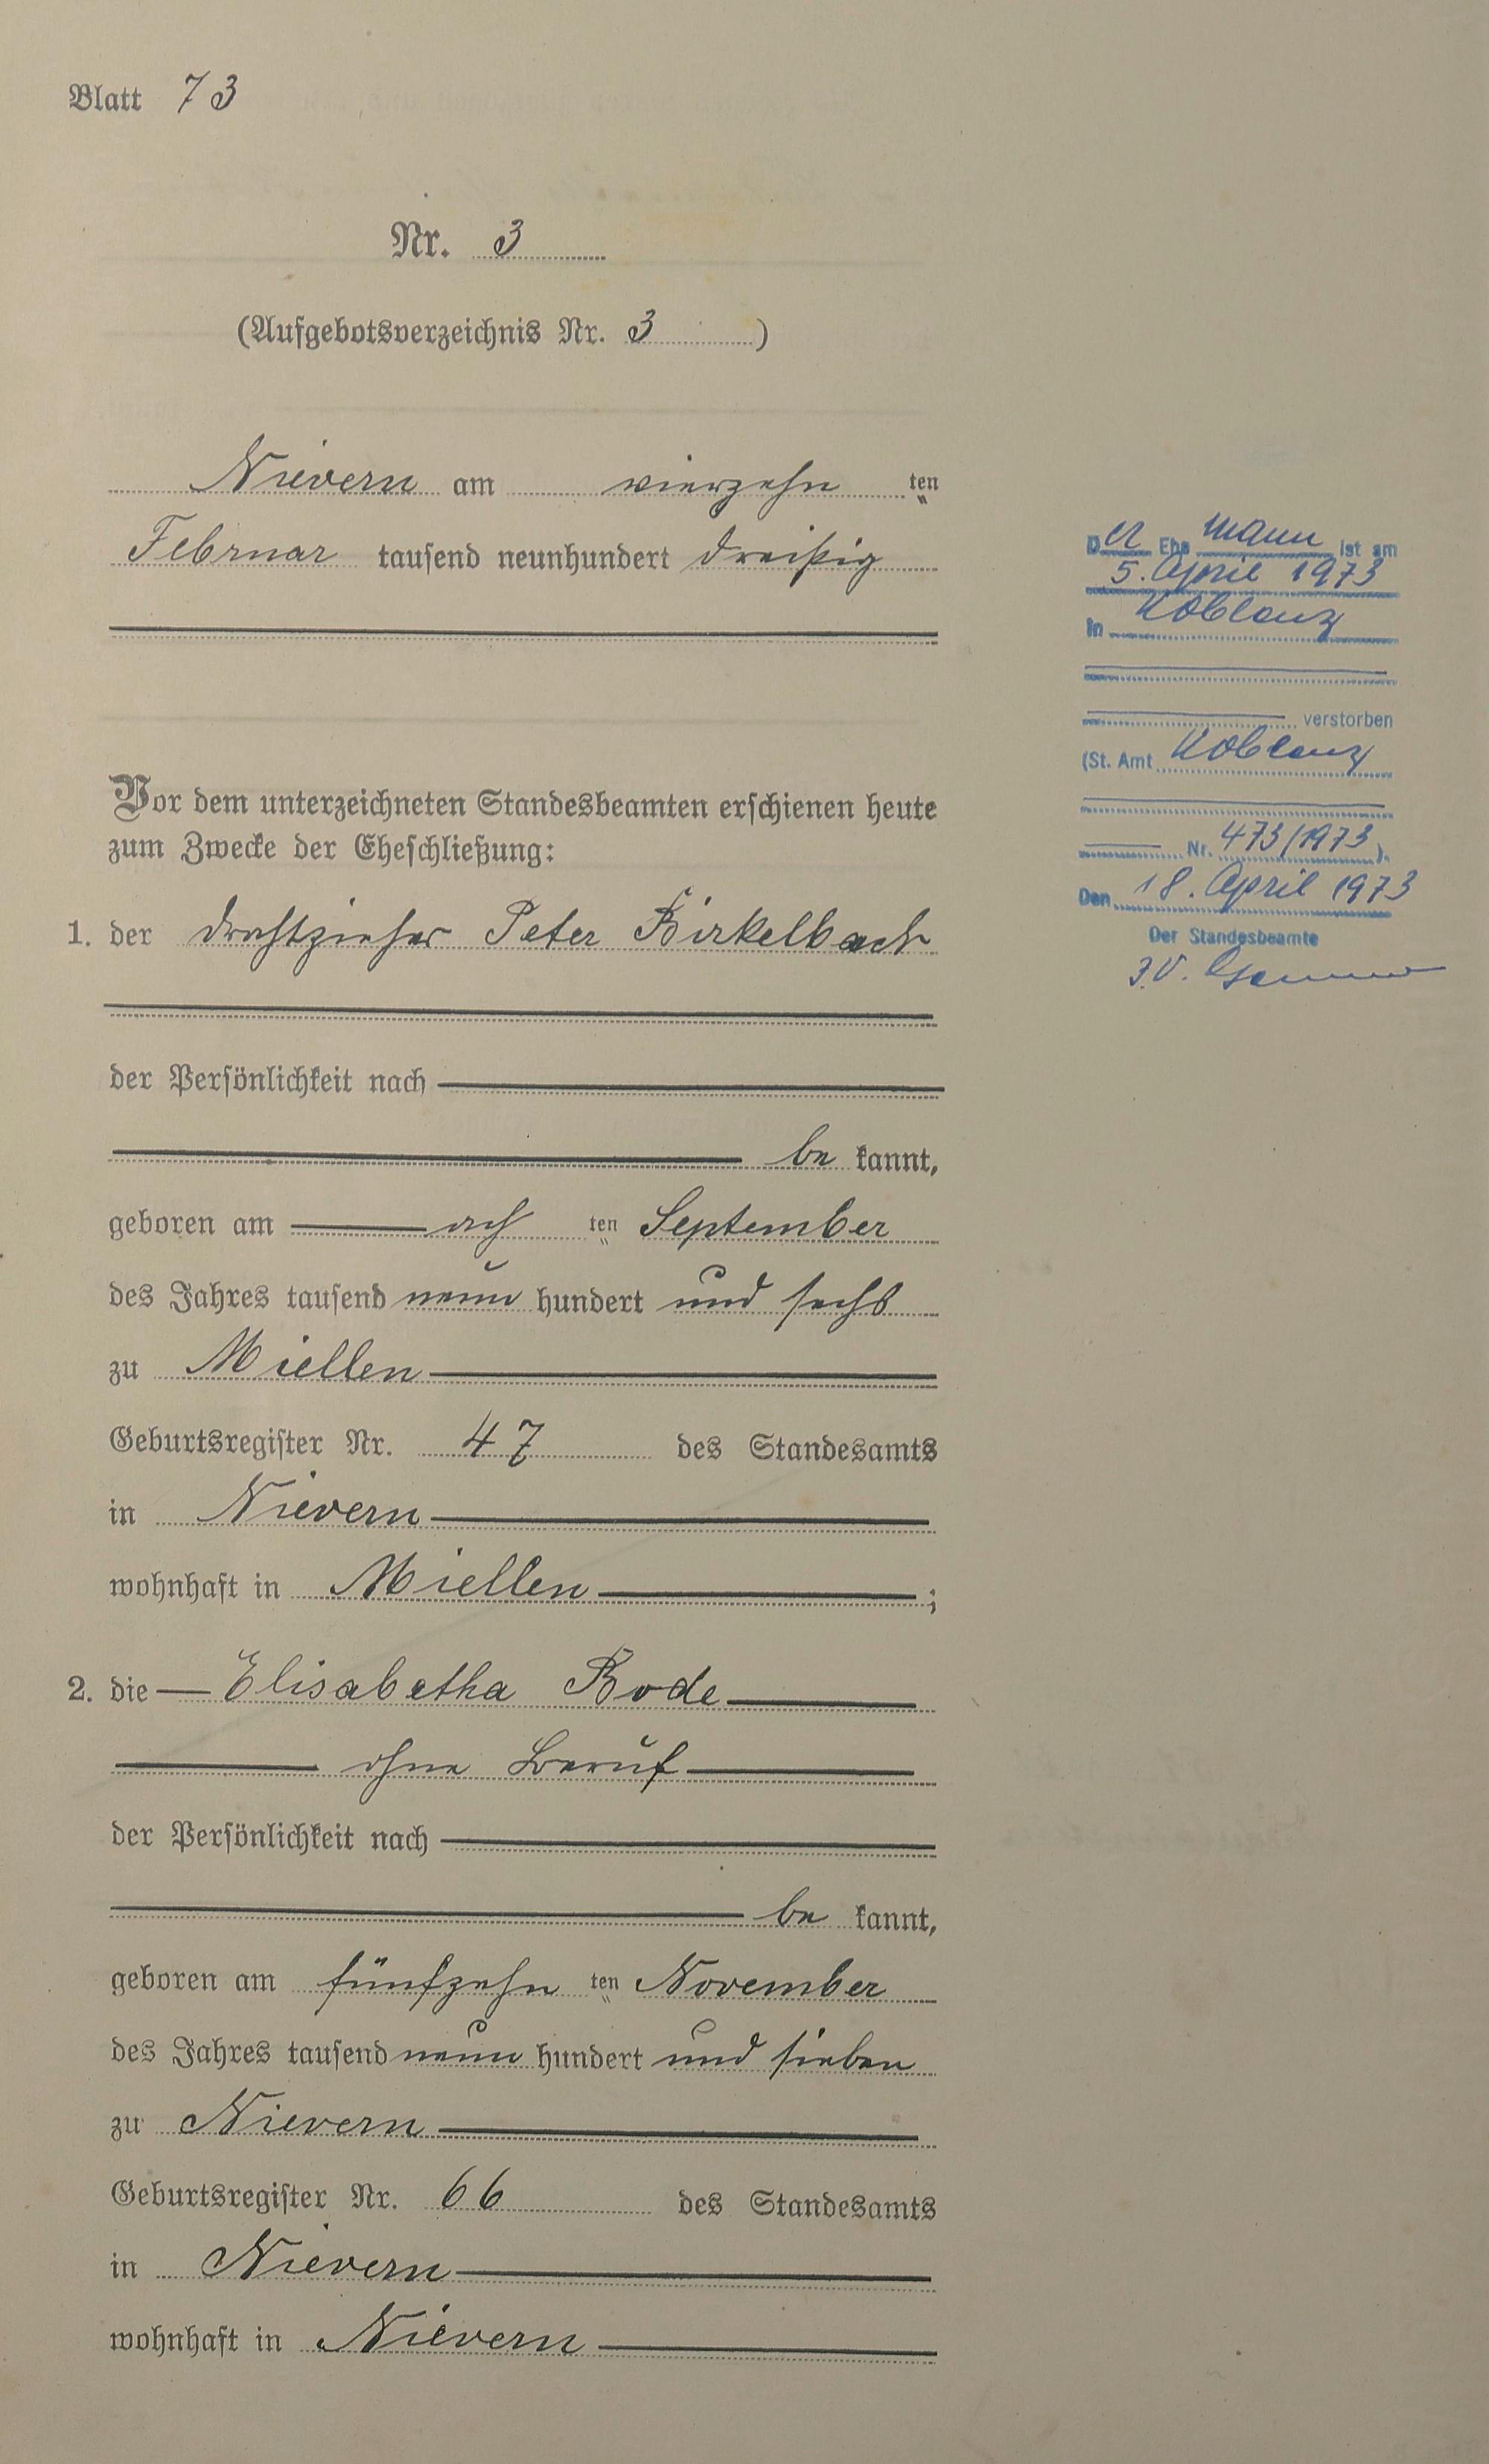 Blatt 73
Nr. 3
(Aufgebotsverzeichnis Nr. 3)
Nievern am vierzehn ten
Februar tausend neunhundert dreißig
Vor dem unterzeichneten Standesbeamten erschienen heute
zum Zwecke der Eheschließung:
1. der Drahtzieher Peter Birkelbach
der Persönlichkeit nach
be kannt,
geboren am ach ten September
des Jahres tausend neun hundert und sechs
zu Miellen
Geburtsregister Nr. 47 des Standesamts
in Nievern
wohnhaft in Miellen ;
2. die Elisabetha Bode
ohne Beruf
der Persönlichkeit nach
be kannt,
geboren am fünfzehn ten November
des Jahres tausend neun hundert und sieben
zu Nievern
Geburtsregister Nr. 66 des Standesamts
in Nievern
wohnhaft in Nievern
Der Ehemann ist am
5. April 1973
in Koblenz
verstorben
(St. Amt Koblenz
Nr. 473/1973).
Den 18. April 1973
Der Standesbeamte
J.V.